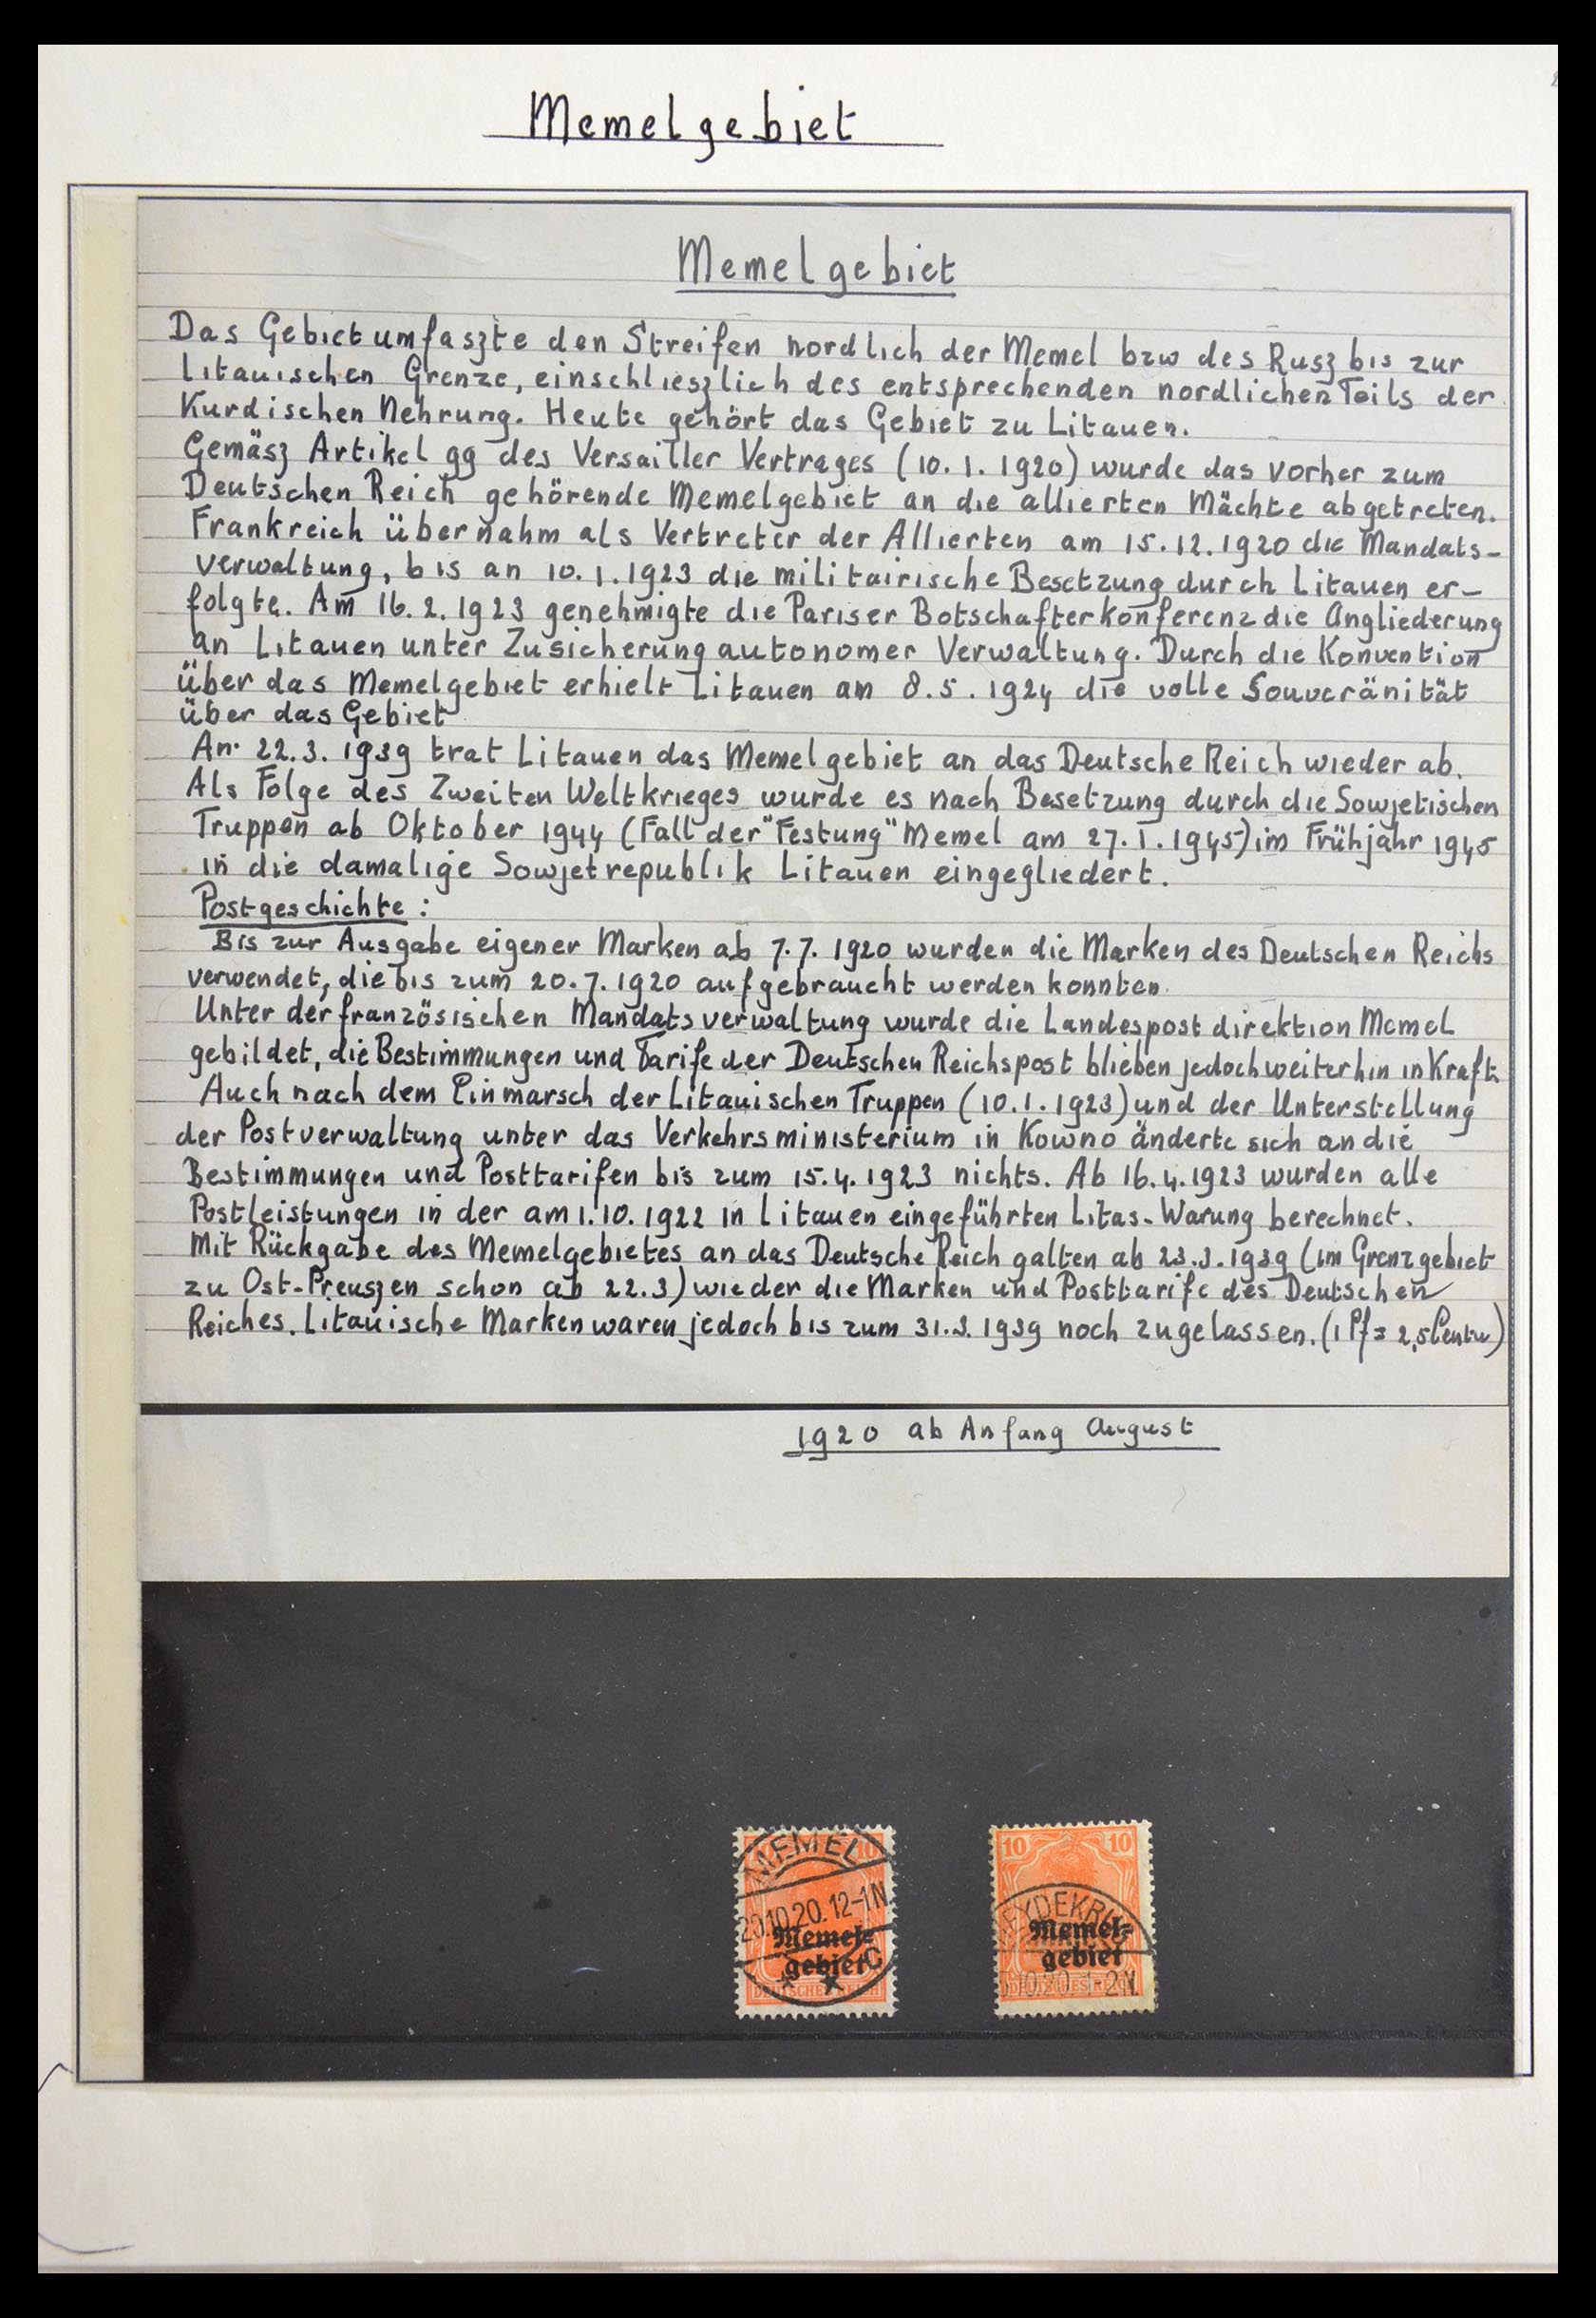 Memelgebiet
Memelgebiet
Das Gebiet umfaszte den Streifen nordlich der Memel bzw des Rusz bis zur
Litauischen Grenze, einschlieszlich des entsprechenden nordlichen Teils der
Kurdischen Nehrung. Heute gehört das Gebiet zu Litauen.
Gemäsz Artikel 99 des Versailler Vertrages (10. 1. 1920) wurde das vorher zum
Deutschen Reich gehörende Memelgebiet an die allierten Mächte abgetreten.
Frankreich übernahm als Vertreter der Allierten am 15.12.1920 die Mandats-
verwaltung, bis an 10. 1. 1923 die militairische Besetzung durch Litauen er-
folgte. Am 16. 2. 1923 genehmigte die Pariser Botschafterkonferenz die Angliederung
an Litauen unter Zusicherung autonomer Verwaltung. Durch die Konvention
über das Memelgebiet erhielt Litauen am 8.5. 1924 die volle Souveränität
über das Gebiet
An 22.3. 1939 trat Litauen das Memelgebiet an das Deutsche Reich wieder ab.
Als Folge des Zweiten Weltkrieges wurde es nach Besetzung durch die Sowjetischen
Truppen ab Oktober 1944 (Fall der "Festung" Memel am 27. 1. 1945) im Frühjahr 1945
in die damalige Sowjetrepublik Litauen eingegliedert.
Postgeschichte :
Bis zur Ausgabe eigener Marken ab 7.7. 1920 wurden die Marken des Deutschen Reichs
verwendet, die bis zum 20.7.1920 aufgebraucht werden konnten.
Unter der französischen Mandatsverwaltung wurde die Landespostdirektion Memel
gebildet, die Bestimmungen und Tarife der Deutschen Reichspost blieben jedoch weiterhin in Kraft.
Auch nach dem Einmarsch der Litauischen Truppen (10.1.1923) und der Unterstellung
der Postverwaltung unter das Verkehrsministerium in Kowno änderte sich an die
Bestimmungen und Posttarifen bis zum 15.4.1923 nichts. Ab 16.4.1923 wurden alle
Postleistungen in der am 1.10.1922 in Litauen eingeführten Litas-Warung berechnet.
Mit Rückgabe des Memelgebietes an das Deutsche Reich galten ab 23.3.1939 (im Grenzgebiet
zu Ost-Preuszen schon ab 22.3) wieder die Marken und Posttarife des Deutschen
Reiches. Litauische Marken waren jedoch bis zum 31.3.1939 noch zugelassen. (1 Pf = 2,5 Centu)
1920 ab Anfang August
10
MEMEL
20.10.20.12-1N
Memel=
gebiet
C
* *
DEUTSCHES REICH
10 10
HEYDEKRUG
Memel=
gebiet
.10.20. 1-2N.
DEUTSCHES REICH